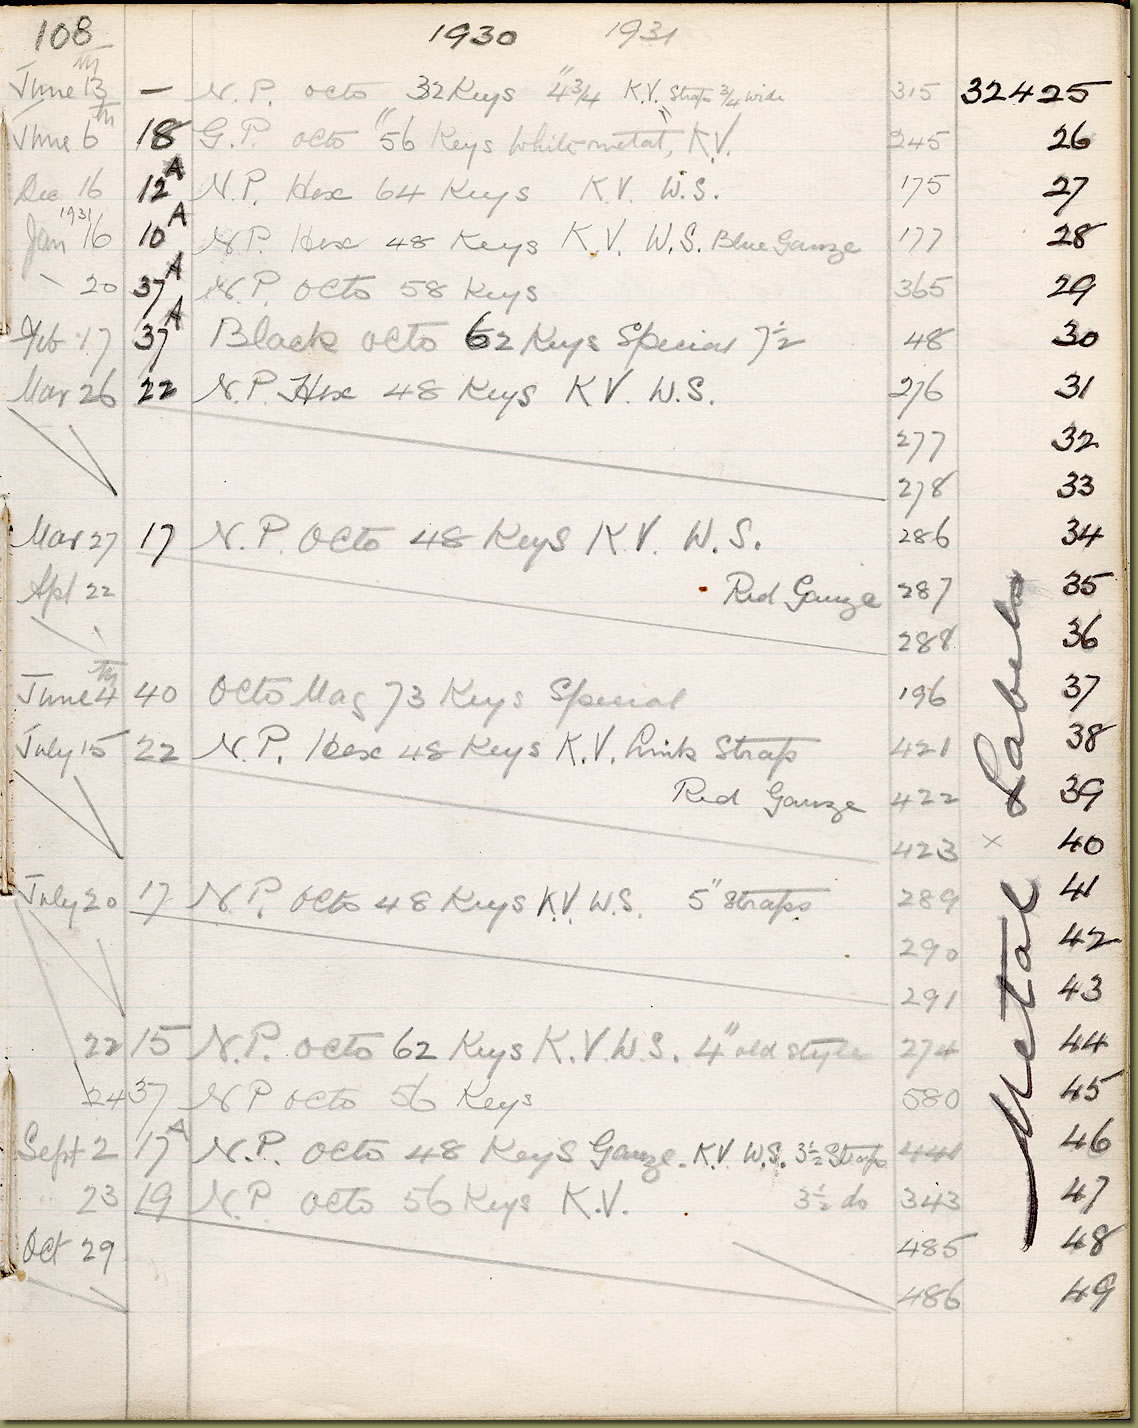 108 1930 1931
June 13th — N.P. Octo 32 Keys 4"3/4 K.V. Straps 3/4 wide 315 32425
June 6th 18 G.P. Octo 56 Keys "White-metal", K.V. 245 26
Dec 16 12A N.P. Hex 64 Keys K.V. W.S. 175 27
Jan 1931 16 10A N.P. Hex 48 Keys K.V. W.S. Blue Gauze 177 28
20 37A N.P. Octo 58 Keys 365 29
Feb 17 37A Black Octo 62 Keys Special 7½ 48 30
Mar 26 22 N.P. Hex 48 Keys K.V. W.S. 276 31
277 32
278 33
Mar 27 17 N.P. Octo 48 Keys K.V. W.S. 286 34
Apl 22 Red Gauze 287 35
288 36
June 4th 40 Octo Mag 73 Keys Special 196 37
July 15 22 N.P. Hex 48 Keys K.V. Link Strap 421 38
Red Gauze 422 39
423 × 40
July 20 17 N.P. Octo 48 Keys K.V. W.S. 5" Straps 289 41
290 42
291 43
22 15 N.P. Octo 62 Keys K.V. W.S. 4" old style 274 44
24 37 N.P. Octo 56 Keys 580 45
Sept 2 17A N.P. Octo 48 Keys Gauze. K.V. W.S. 3½ Straps 441 46
23 19 N.P. Octo 56 Keys K.V. 3½ do 343 47
Oct 29 485 48
486 49
Metal Labels